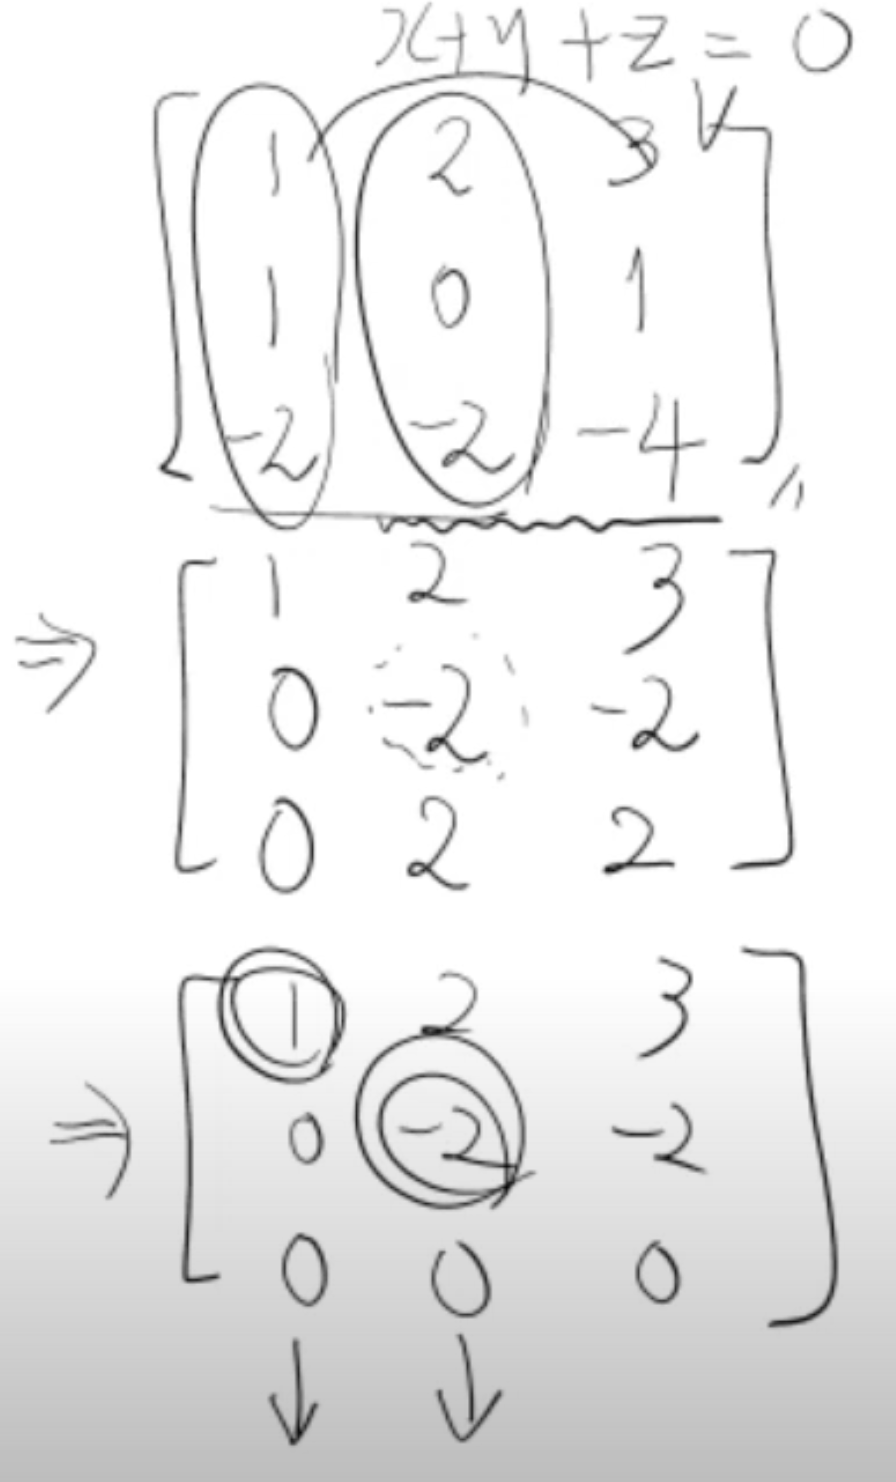 x+y+z=0
1 2 3 V
1 0 1
-2 -2 -4
1 2 3
⇒ 0 -2 -2
0 2 2
1 2 3
⇒ 0 -2 -2
0 0 0
↓ ↓